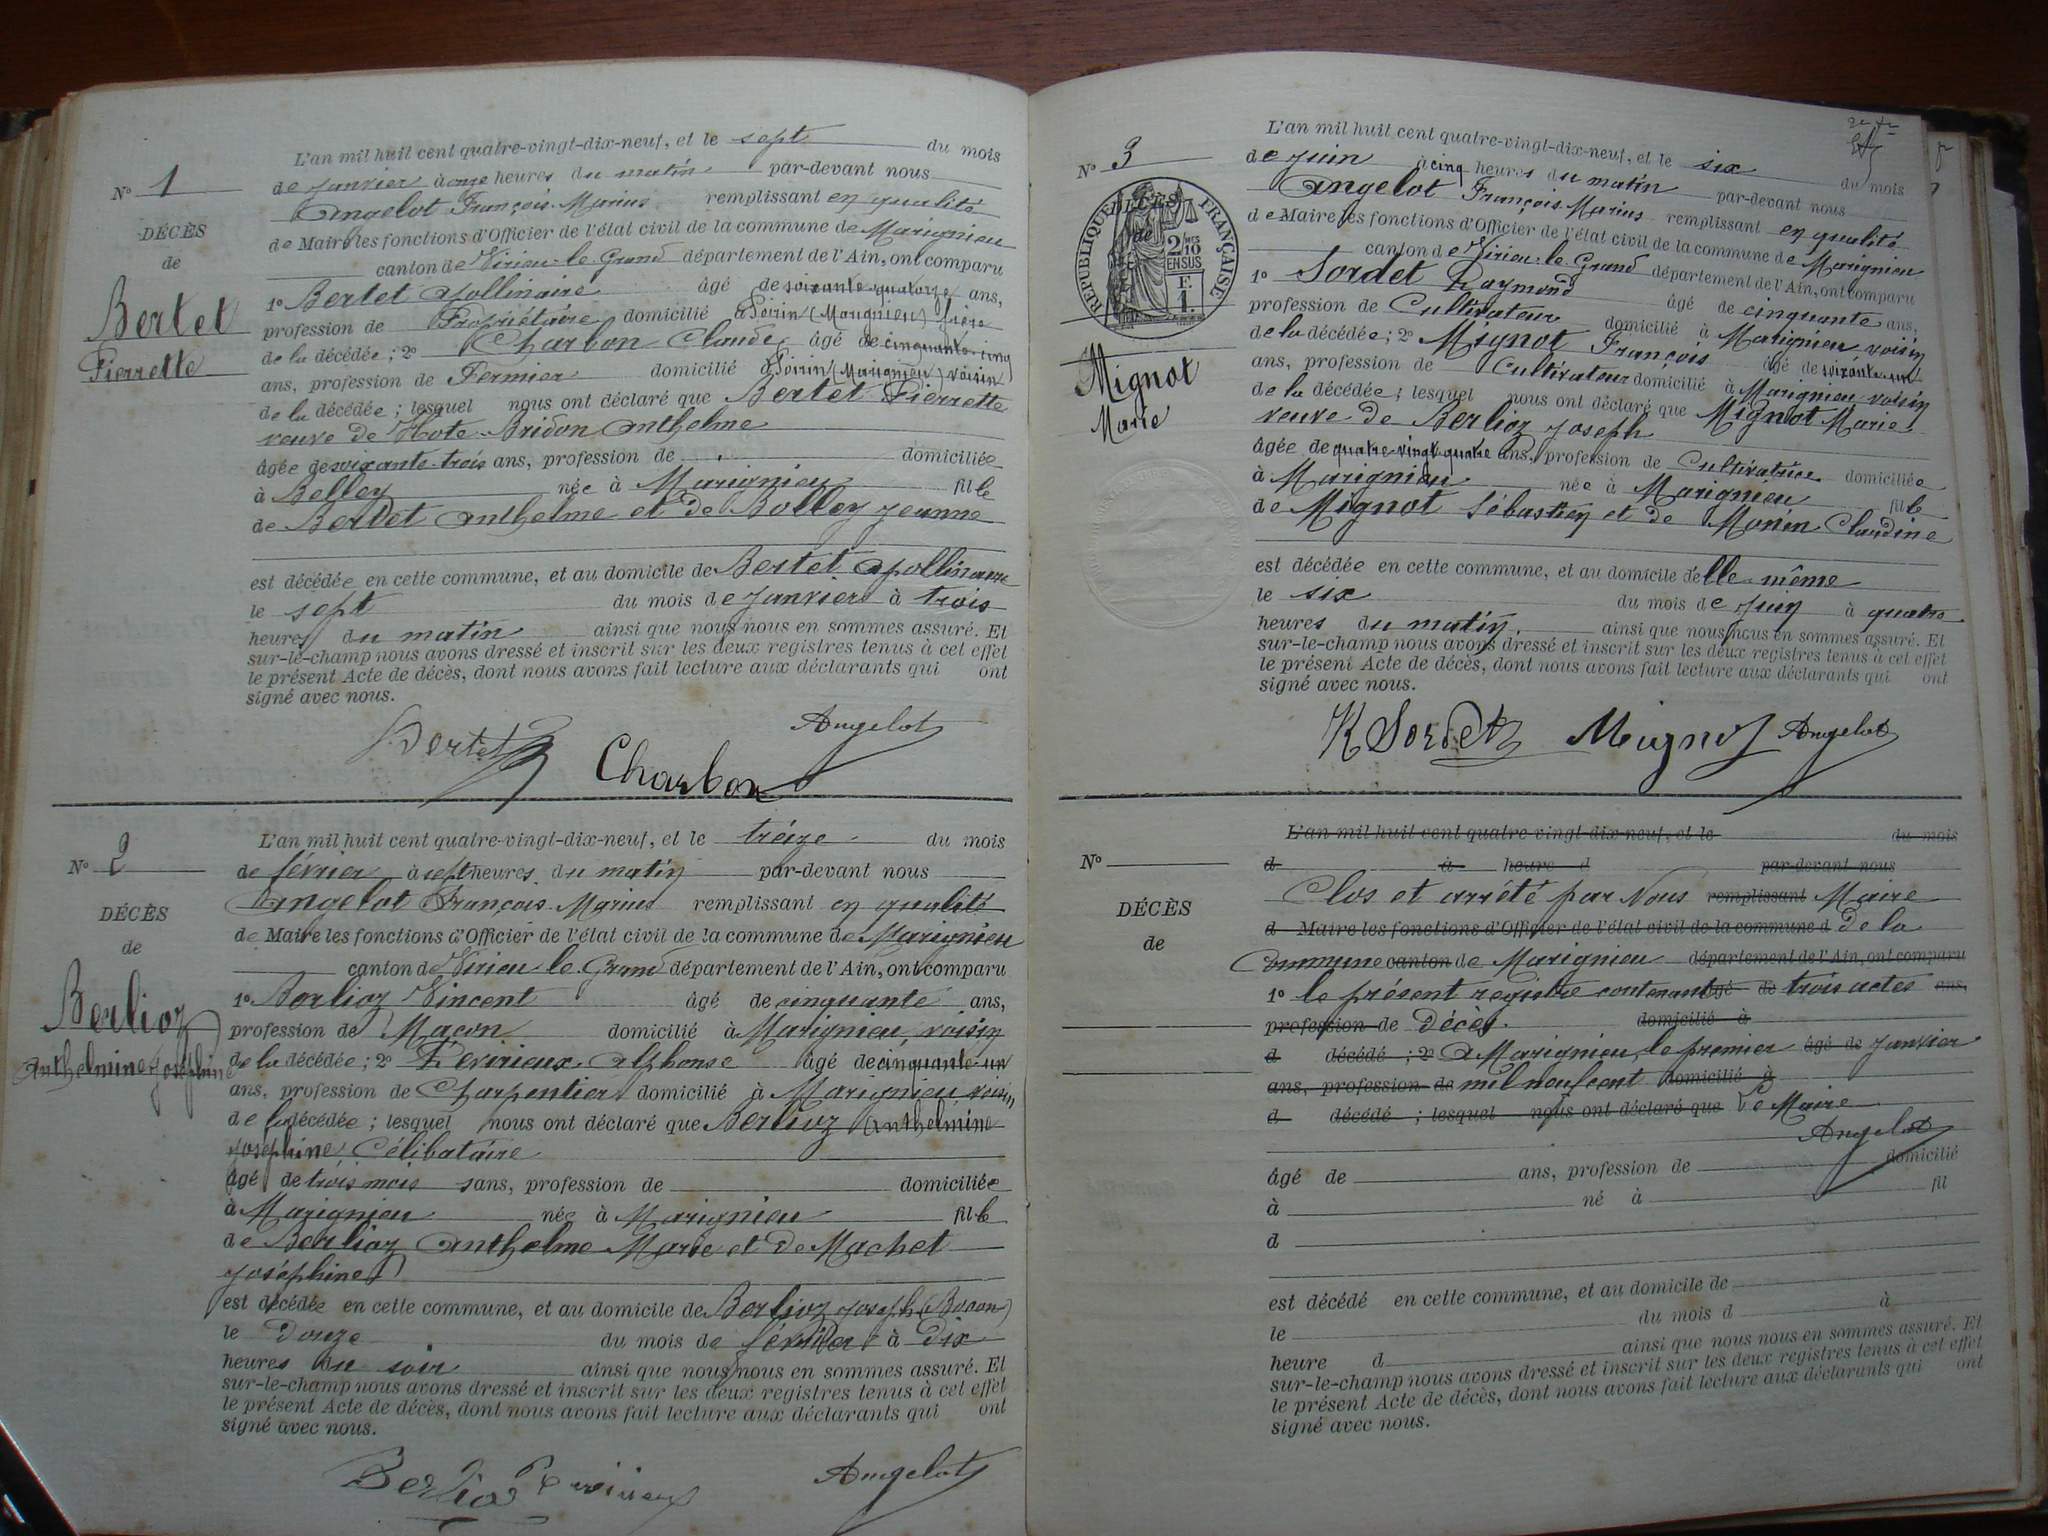 L'an mil huit cent quatre-vingt-dix-neuf, et le sept du mois
No 1
de janvier à onze heures du matin par-devant nous
Angelot François Marius remplissant en qualité
DÉCÈS
de Maire les fonctions d'Officier de l'état civil de la commune de Marignieu
de
canton de Virieu-le-Grand département de l'Ain, ont comparu
Bertet
1o Bertet Apollinaire âgé de soixante-quatorze ans,
profession de Propriétaire domicilié à Poirin (Marignieu) frère
Pierrette
de la décédée ; 2o Charbon Claude âgé de cinquante-cinq
ans, profession de Fermier domicilié à Poirin (Marignieu) voisin
de la décédée ; lesquel nous ont déclaré que Bertet Pierrette
veuve de Hote-Bridon Anthelme
âgée de soixante-trois ans, profession de domiciliée
à Belley née à Marignieu fille
de Bertet Anthelme et de Bolley Jeanne
est décédée en cette commune, et au domicile de Bertet Apollinaire
le sept du mois de janvier à trois
heures du matin ainsi que nous nous en sommes assuré. Et
sur-le-champ nous avons dressé et inscrit sur les deux registres tenus à cet effet
le présent Acte de décès, dont nous avons fait lecture aux déclarants qui ont
signé avec nous.
Bertet Charbon Angelot
L'an mil huit cent quatre-vingt-dix-neuf, et le treize du mois
No 2
de février à sept heures du matin par-devant nous
Angelot François Marius remplissant en qualité
DÉCÈS
de Maire les fonctions d'Officier de l'état civil de la commune de Marignieu
de
canton de Virieu-le-Grand département de l'Ain, ont comparu
Berlioz
1o Berlioz Vincent âgé de cinquante ans,
profession de Maçon domicilié à Marignieu, voisin
Anthelmine Joséphine
de la décédée ; 2o Alphonse âgé de cinquante-un
ans, profession de Charpentier domicilié à Marignieu voisin
de la décédée ; lesquel nous ont déclaré que Berlioz Anthelmine
Joséphine, Célibataire
âgé de trois mois sans, profession de domiciliée
à Marignieu née à Marignieu fille
de Berlioz Anthelme Marie et de Machet
Joséphine
est décédée en cette commune, et au domicile de Berlioz Joseph
le douze du mois de février à dix
heures du soir ainsi que nous nous en sommes assuré. Et
sur-le-champ nous avons dressé et inscrit sur les deux registres tenus à cet effet
le présent Acte de décès, dont nous avons fait lecture aux déclarants qui ont
signé avec nous.
Berlioz Angelot
L'an mil huit cent quatre-vingt-dix-neuf, et le six du mois
No 3
de juin à cinq heures du matin par-devant nous
Angelot François Marius remplissant en qualité
DÉCÈS
de
RÉPUBLIQUE FRANÇAISE
2/10 EN SUS
1 F.
de Maire les fonctions d'Officier de l'état civil de la commune de Marignieu
canton de Virieu-le-Grand département de l'Ain, ont comparu
1o Sordet Raymond âgé de cinquante ans,
profession de Cultivateur domicilié à Marignieu voisin
Mignot
Marie
de la décédée ; 2o Mignot François âgé de soixante-un
ans, profession de Cultivateur domicilié à Marignieu voisin
de la décédée ; lesquel nous ont déclaré que Mignot Marie
veuve de Berlioz Joseph
âgée de quatre-vingt-quatre ans, profession de Cultivatrice domiciliée
à Marignieu née à Marignieu fille
de Mignot Sébastien et de Monin Claudine
est décédée en cette commune, et au domicile d'elle-même
le six du mois de juin à quatre
heures du matin ainsi que nous nous en sommes assuré. Et
sur-le-champ nous avons dressé et inscrit sur les deux registres tenus à cet effet
le présent Acte de décès, dont nous avons fait lecture aux déclarants qui ont
signé avec nous.
Sordet Mignot Angelot
L'an mil huit cent quatre-vingt-dix-neuf, et le du mois
No
d à heure d par-devant nous
Clos et arrêté par Nous remplissant Maire
DÉCÈS
d Maire les fonctions d'Officier de l'état civil de la commune d De la
de
Commune canton de Marignieu département de l'Ain, ont comparu
1o le présent registre contenant âgé de trois actes ans,
profession de Décès. domicilié à
d décédé ; 2o A Marignieu, le premier âgé de janvier
ans, profession de mil neuf cent domicilié à
d décédé ; lesquel nous ont déclaré que Le Maire
Angelot
âgé de ans, profession de domicilié
à né à fil
d
est décédé en cette commune, et au domicile de
le du mois d à
heure d ainsi que nous nous en sommes assuré. Et
sur-le-champ nous avons dressé et inscrit sur les deux registres tenus à cet effet
le présent Acte de décès, dont nous avons fait lecture aux déclarants qui ont
signé avec nous.